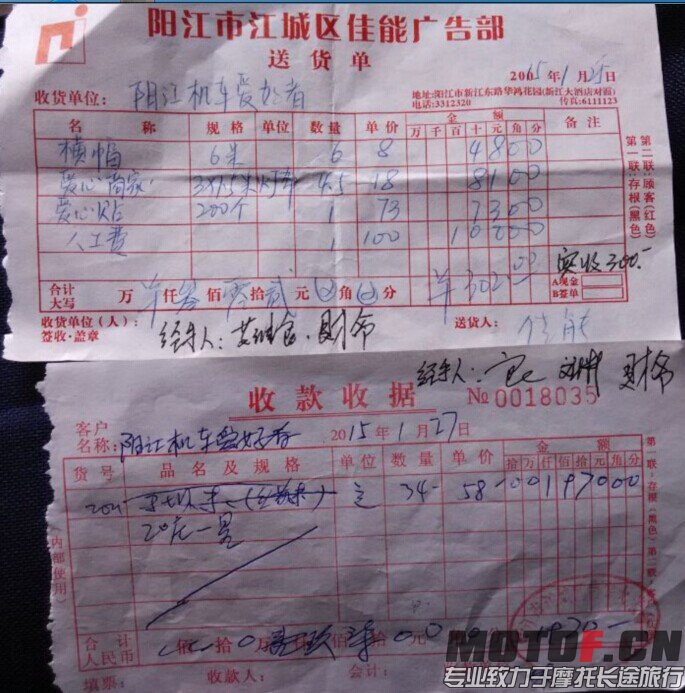 阳江市江城区佳能广告部
送货单
2005年1月25日
收货单位：阳江机车爱好者
地址：阳江市新江东路华鸿花园（新江大酒店对面）
电话：3312320 传真：6111123
名称 规格 数量 单价 金额 备注
万 千 百 十 元 角 分
横幅 6米 6 8 4800
爱心商家 4.5 18 8100
爱心贴 200个 1 73 7300
人工费 1 100 10000
第一联：存根（黑色） 第二联：顾客（红色）
合计大写 万 仟 叁佰零拾贰元 角 分 302.00 实收300.-
A现金
B签单
收货单位（人）：
签收·盖章
送货人：佳能
经手人： 财布
经手人： 财布
收款收据 № 0018035
客户名称：阳江机车爱好者 2015年1月27日
货号 品名及规格 单位 数量 单价 金额
拾 万 仟 佰 拾 元 角 分
34 58- 197000
第一联：存根（黑色）
（内部使用）
合计人民币 佰 拾 万 佰 1970-
填票： 收款人： 会计：
MOTOF.CN
专业致力于摩托长途旅行